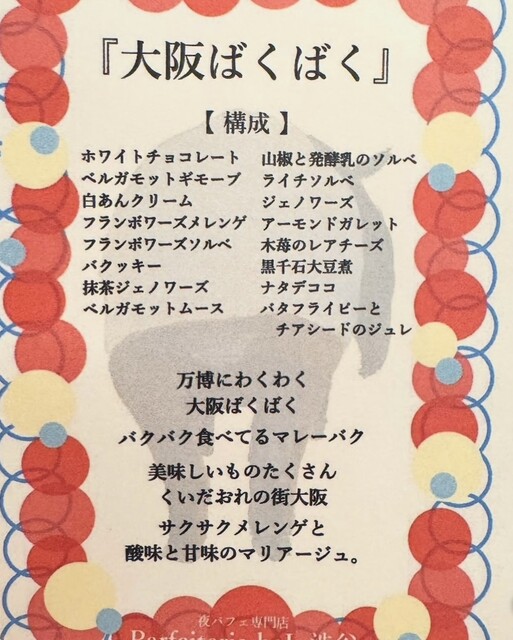 『大阪ばくばく』
【 構成 】
ホワイトチョコレート
ベルガモットギモーブ
白あんクリーム
フランボワーズメレンゲ
フランボワーズソルベ
バクッキー
抹茶ジェノワーズ
ベルガモットムース
山椒と発酵乳のソルベ
ライチソルベ
ジェノワーズ
アーモンドガレット
木苺のレアチーズ
黒千石大豆煮
ナタデココ
バタフライピーと
チアシードのジュレ
万博にわくわく
大阪ばくばく
バクバク食べてるマレーバク
美味しいものたくさん
くいだおれの街大阪
サクサクメレンゲと
酸味と甘味のマリアージュ。
夜パフェ専門店